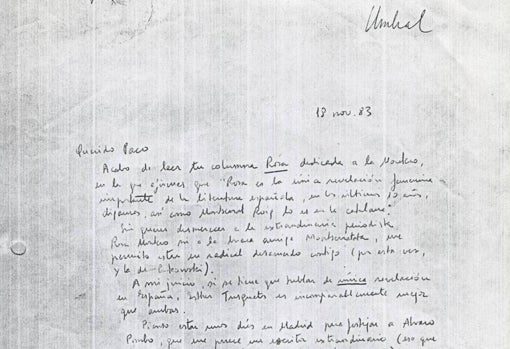 Umbral
18 nov. 83
Querido Paco
Acabo de leer tu columna Rosa dedicada a la Montero,
en la que afirmas que "Rosa es la única revelación femenina
importante de la literatura española, en los últimos 10 años,
digamos, así como Montserrat Roig lo es en la catalana".
Sin querer desmerecer a la extraordinaria periodista
Rosa Montero ni a la brava amiga Montserrat, me
permito estar en radical desacuerdo contigo (por esta vez,
y la de Bukowski).
A mi juicio, si se tiene que hablar de única revelación
en España, Esther Tusquets es incomparablemente mejor
que ambas.
Pienso estar unos días en Madrid para festejar a Alvaro
Pombo, que me parece un escritor extraordinario (eso que